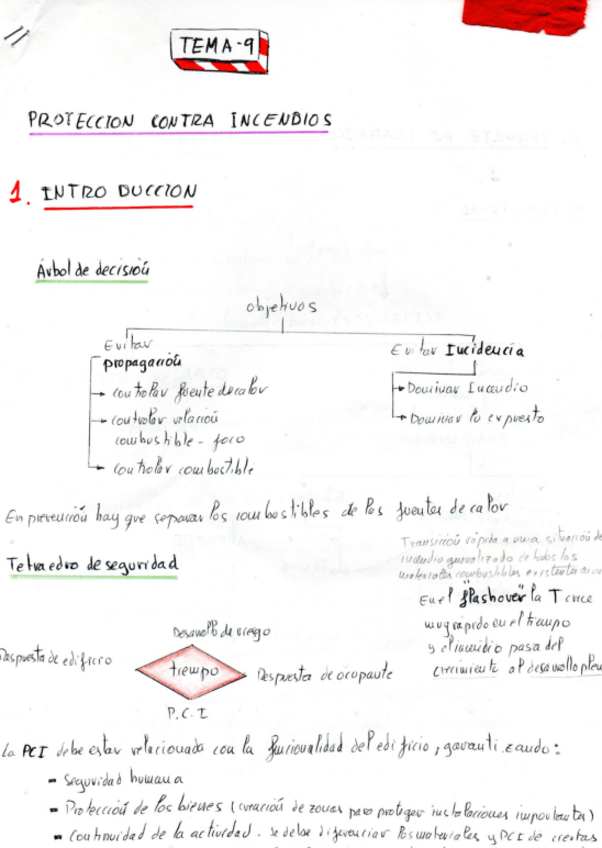 11
TEMA-9
PROTECCION CONTRA INCENDIOS
1. INTRODUCCION
Árbol de decisión
objetivos
Evitar propagación
controlar fuente de calor
controlar relación
combustible - foco
controlar combustible
Evitar Incidencia
Dominar Incendio
Dominar lo expuesto
En prevención hay que separar los combustibles de los fuentes de calor
Transición rápida a una situación de
incendio generalizado de todos los
materiales combustibles existentes
En el "flashover" la T crece
muy rápido en el tiempo
y el incendio pasa del
crecimiento al desarrollo
Tetraedro de seguridad
Desarrollo de riesgo
Respuesta de edificio
tiempo
Respuesta de ocupante
P.C.I
La PCI debe estar relacionada con la funcionalidad del edificio, garantizando:
- Seguridad humana
- Protección de los bienes (creación de zonas para proteger instalaciones importantes)
- Continuidad de la actividad. Se debe diferenciar los materiales y PCI de ciertas